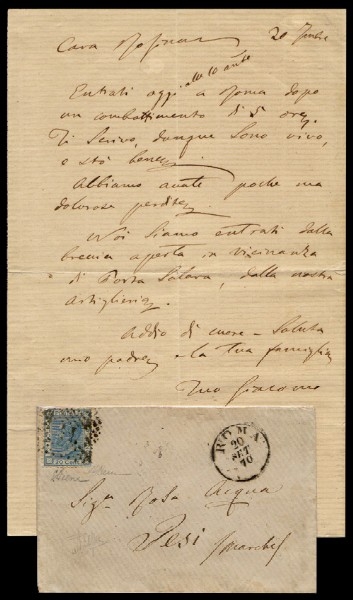 Cara Rosina 20 7mbre
Entrati oggi alle 10 ant. a Roma dopo
un combattimento di 5 ore.
Ti Scrivo, dunque Sono vivo,
e stò bene.
Abbiamo avute poche ma
dolorose perdite.
Noi siamo entrati dalla
breccia aperta in vicinanza
di Porta Salara, dalla nostra
artiglieria.
Addio di cuore - Saluta
mio padre e la tua famiglia
Tuo Giacomo
ROMA
20
SET
70
Sig.ra Rosa Acqua
Jesi (Marche)